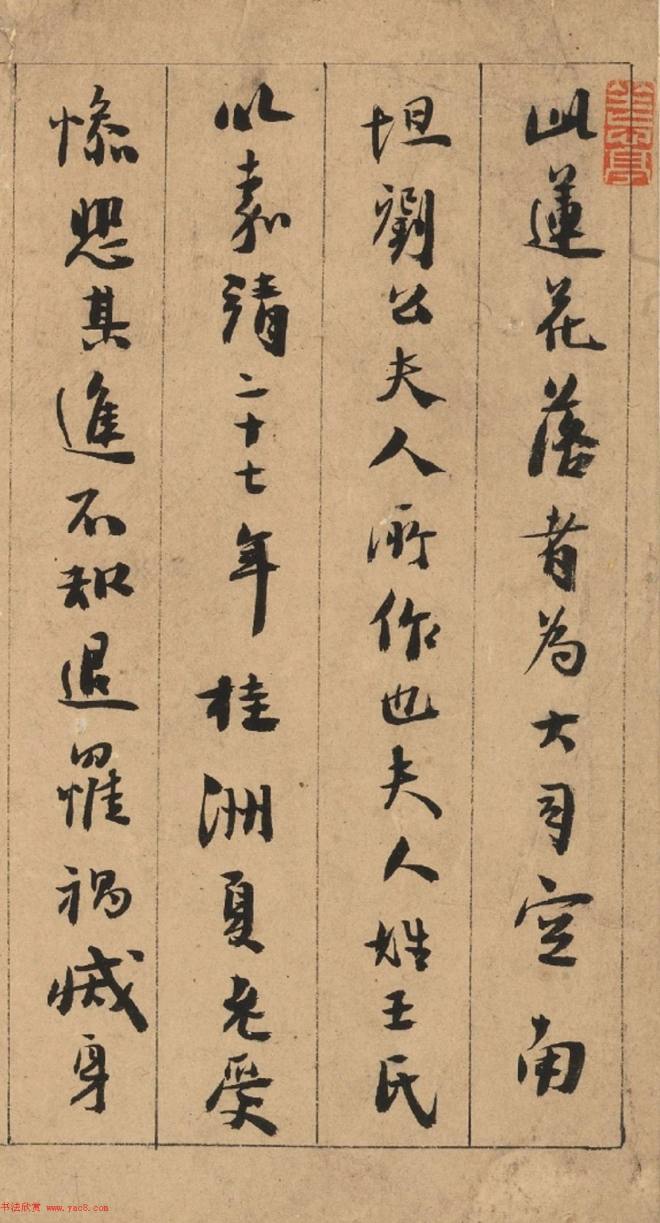 此蓮花落者為大司空南
坦劉公夫人所作也夫人姓王氏
以嘉靖二十七年桂洲夏老受
慘愍其進不知退罹禍滅身
书法欣赏 www.yac8.com